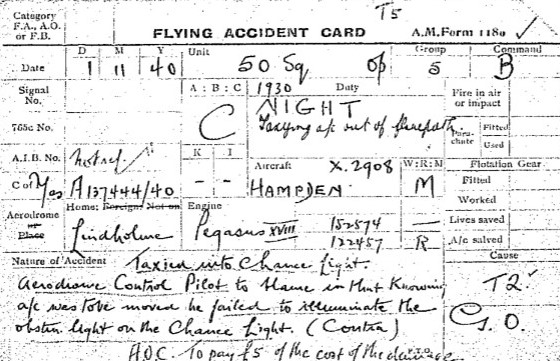 T5
Category
F.A., A.O.
or F.B.
FLYING ACCIDENT CARD
A.M. Form 1180
D M Y
Unit
Group
Command
Date
1 11 40
50 Sq
Op
5
B
Signal
No.
A : B : C
C
1930
Duty
NIGHT
Taxying a/c out of flarepath
Fire in air
or impact
765c No.
Para-
chute
Fitted
Used
A.I.B. No.
Not ref.
K I
- -
Aircraft
X.2908
HAMPDEN
W : R : M
M
Flotation Gear
Fitted
Worked
C of
Yes A137444/40
Aerodrome
or
Place
Home: Foreign: Not on
Lindholme
Engine
Pegasus XVIII
152574
122457
—
R
Lives saved
A/c salved
Nature of Accident
Taxied into Chance Light.
Cause
T2.
G.O.
Aerodrome Control Pilot to blame in that knowing
a/c was to be moved he failed to illuminate the
obstn light on the Chance Light. (Contra)
A.O.C. To pay £5 of the cost of the damage